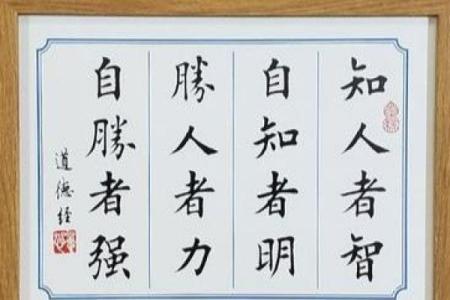 知人者智
自知者明
勝人者力
自勝者强
道德經